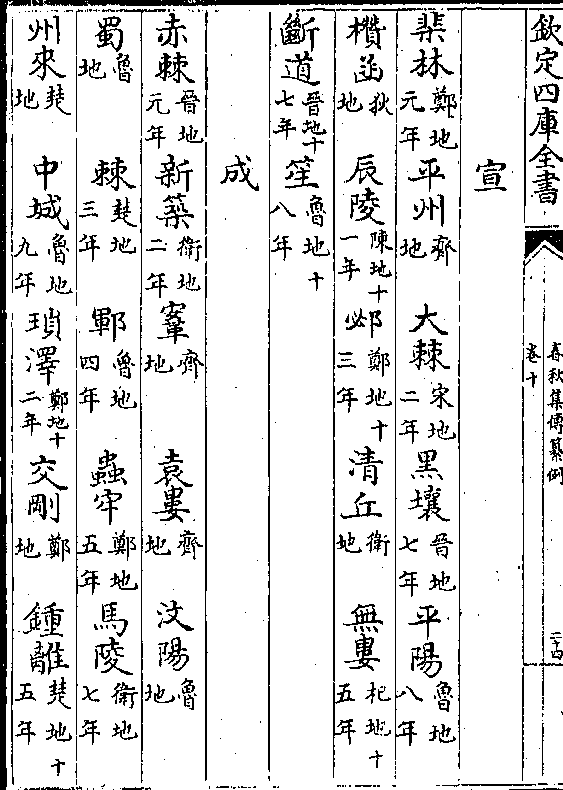 欽定四庫全書
春秋集傳纂例
卷十
二十四
宣
棐林鄭地元年 平州齊地 大棘宋地二年 黑壤晉地七年 平陽魯地八年
欑函狄地 辰陵陳地十一年 邲鄭地十三年 清丘衛地 無婁杞地十五年
斷道晉地十七年 笙魯地十八年
成
赤棘晉地元年 新築衛地二年 鞌齊地 袁婁齊地 汶陽魯地
蜀魯地 棘楚地三年 鄆魯地四年 蟲牢鄭地五年 馬陵衛地七年
州來楚地 中城魯地九年 瑣澤鄭地十二年 交剛鄭地 鍾離楚地十五年